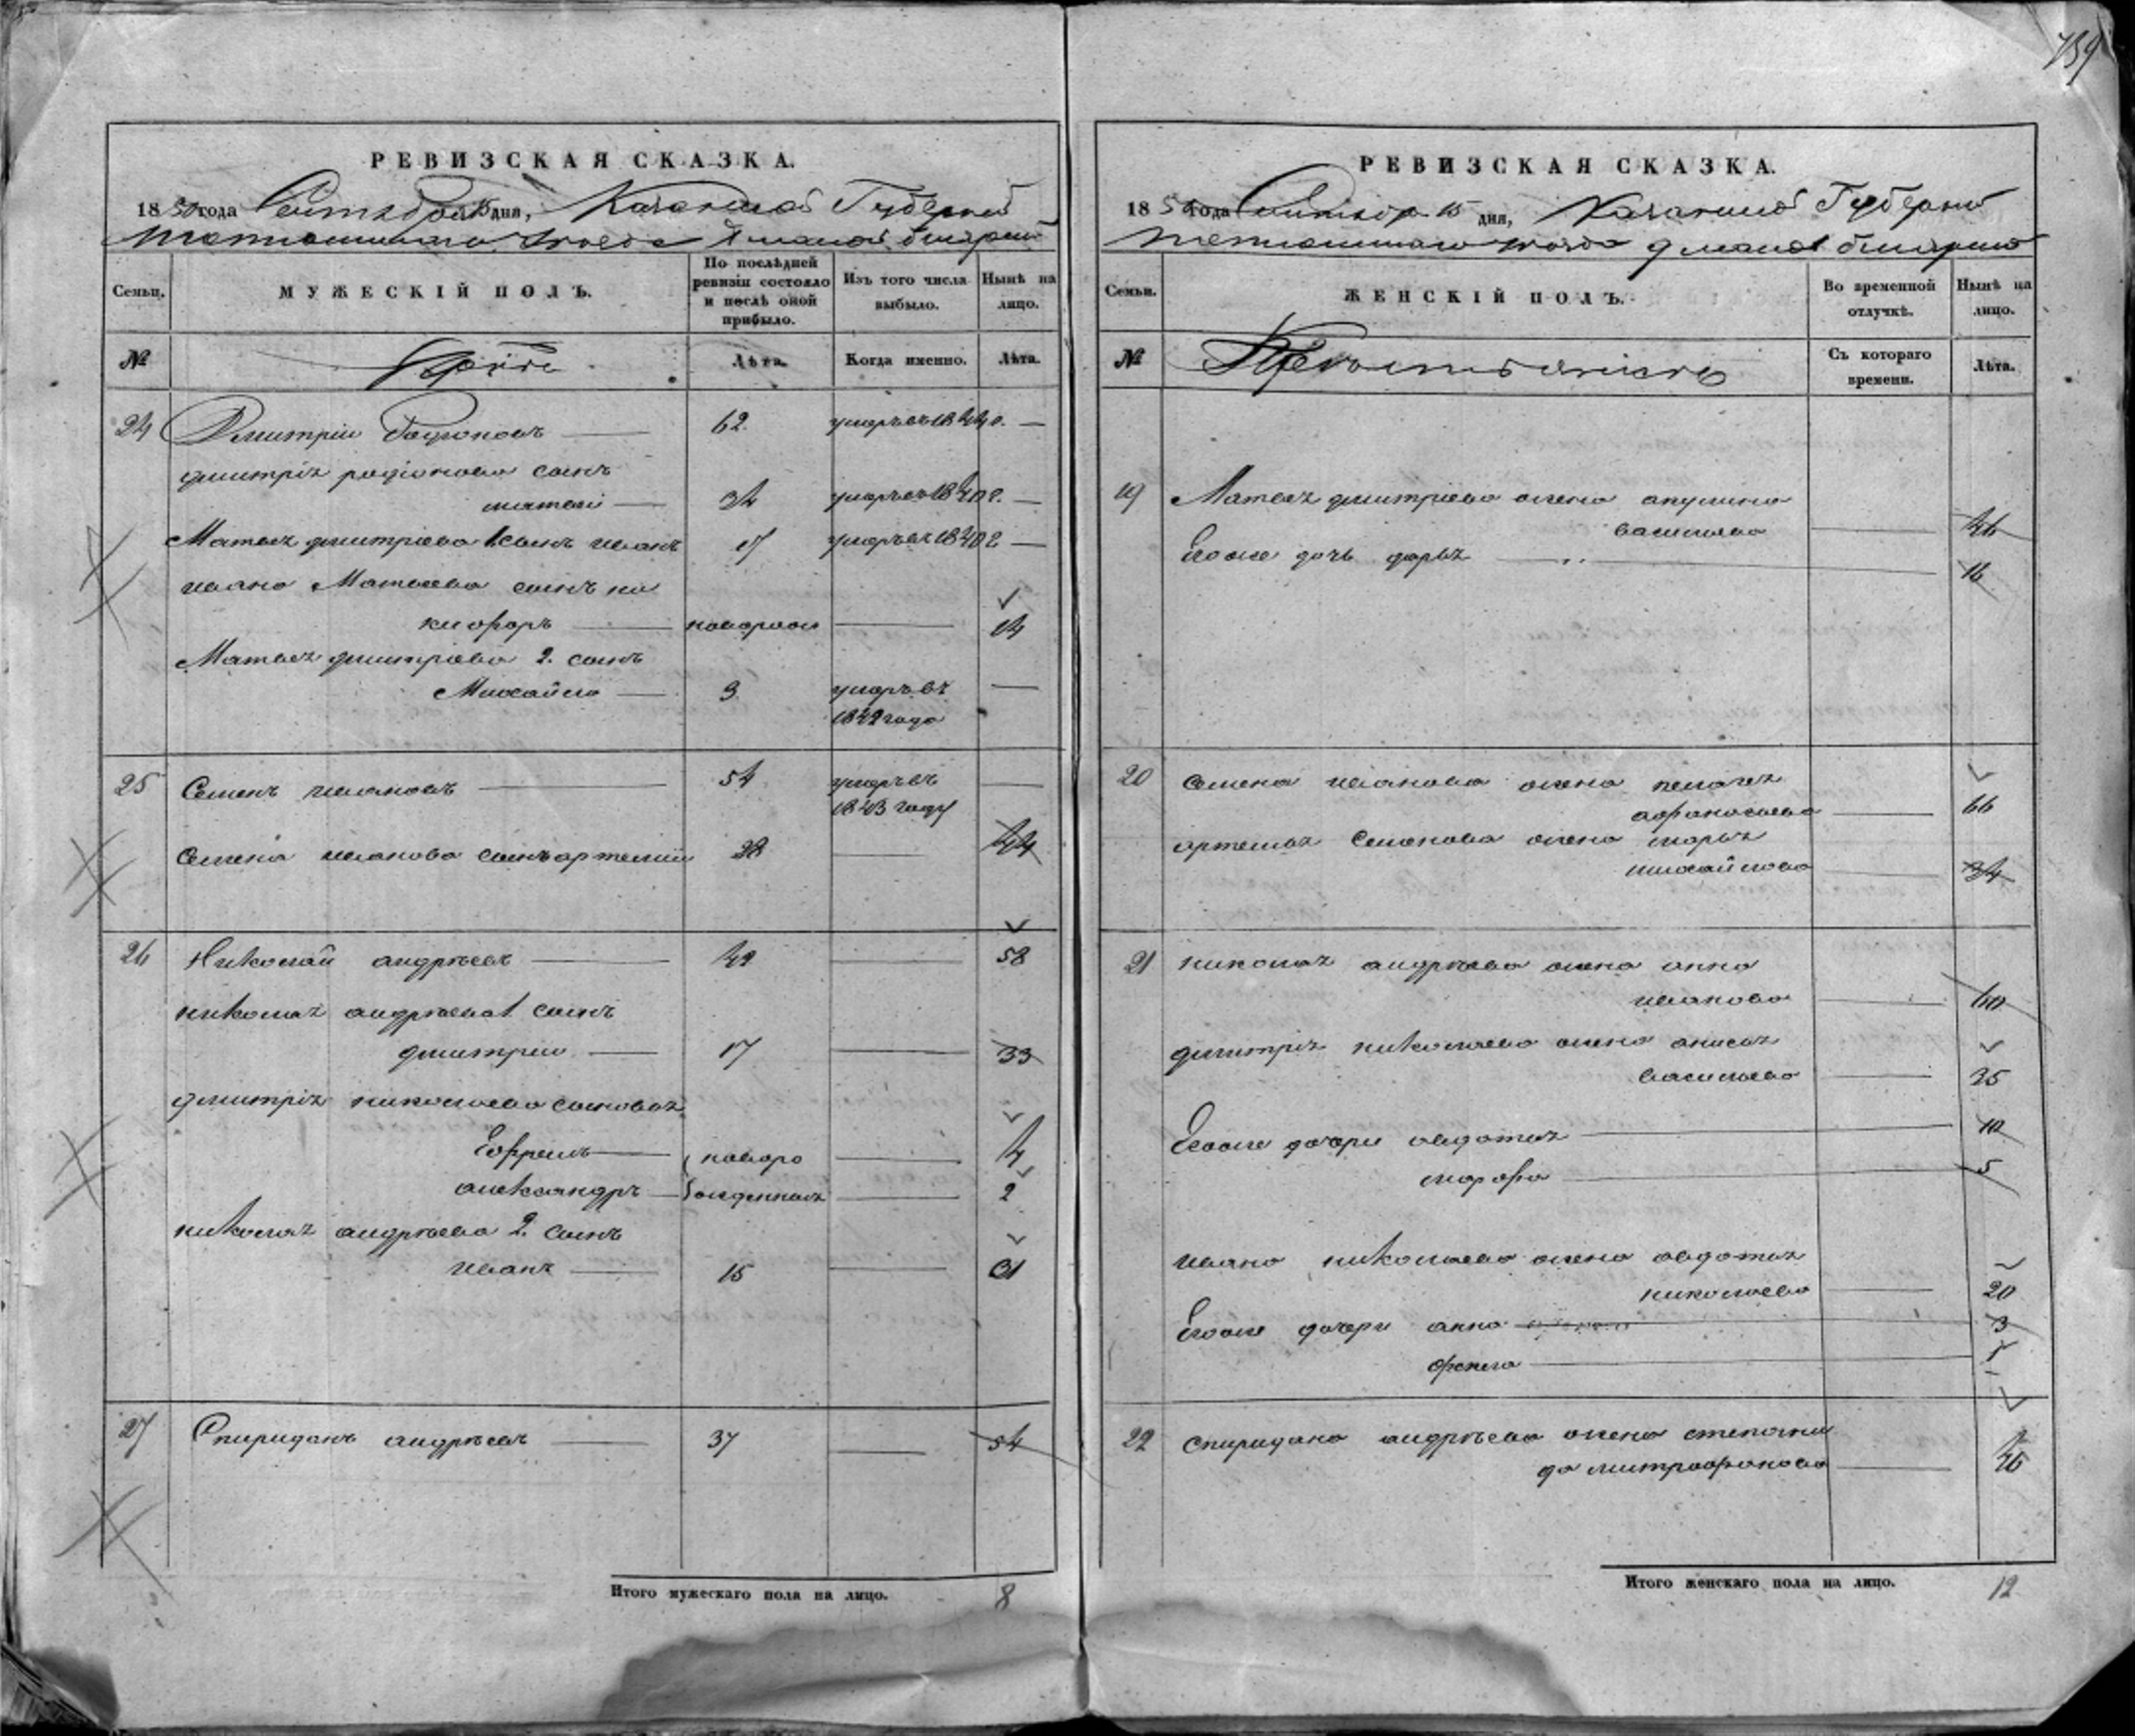 739
РЕВИЗСКАЯ СКАЗКА.
1850 года Сентября 15 дня, Казанской Губернии
Тетюшскаго уезда
Семьи.
МУЖЕСКІЙ ПОЛЪ.
По послѣдней ревизіи состояло и послѣ оной прибыло.
Изъ того числа выбыло.
Нынѣ на лицо.
№
Лѣта.
Когда именно.
Лѣта.
24 Дмитрій Родіоновъ — 62. умеръ въ 1844 г. —
дмитрія родіонова сынъ
матвѣй — 34 умеръ въ 1840 г. —
Матвея дмитріева 1 сынъ иванъ 17 умеръ въ 1840 г —
ивана Матвеева сынъ ни
кифоръ — новорож — 14
Матвея дмитріева 2. сынъ
Михайло — 9. умеръ въ —
1842 года
25 Семенъ ивановъ — 54 умеръ въ —
1843 году
Семена иванова сынъ артемій 28 — 44
26 Николай андрѣевъ — 42 — 58
николая андрѣева 1 сынъ
дмитрій — 17 — 33
дмитрія николаева сыновья
Ефремъ — новоро — 4
александръ — жденныя — 2
николая андрѣева 2. сынъ
иванъ — 15 — 31
27 Спиридонъ андрѣевъ — 37 — 54
Итого мужескаго пола на лицо. 8
РЕВИЗСКАЯ СКАЗКА.
1850 года Сентября 15 дня, Казанской Губерніи
Тетюшскаго уезда
Семьи.
ЖЕНСКІЙ ПОЛЪ.
Во временной отлучкѣ.
Нынѣ на лицо.
№
Съ котораго времени.
Лѣта.
19 Матвея дмитріева жена акулина
васильева — 46
Егоже дочь дарья — 16
20 Семена иванова жена пелагея
афанасьева — 66
артемья Семенова жена марья
михайлова — 34
21 николая андрѣева жена анна
иванова — 60
дмитрія николаева жена анисья
васильева — 35
Егоже дочери авдотья — 10
марфа — 5
ивана николаева жена авдотья
николаева — 20
Егоже дочери анна — 3
фекла — 1
22 спиридона андрѣева жена степани
да митрофанова — 46
Итого женскаго пола на лицо. 12